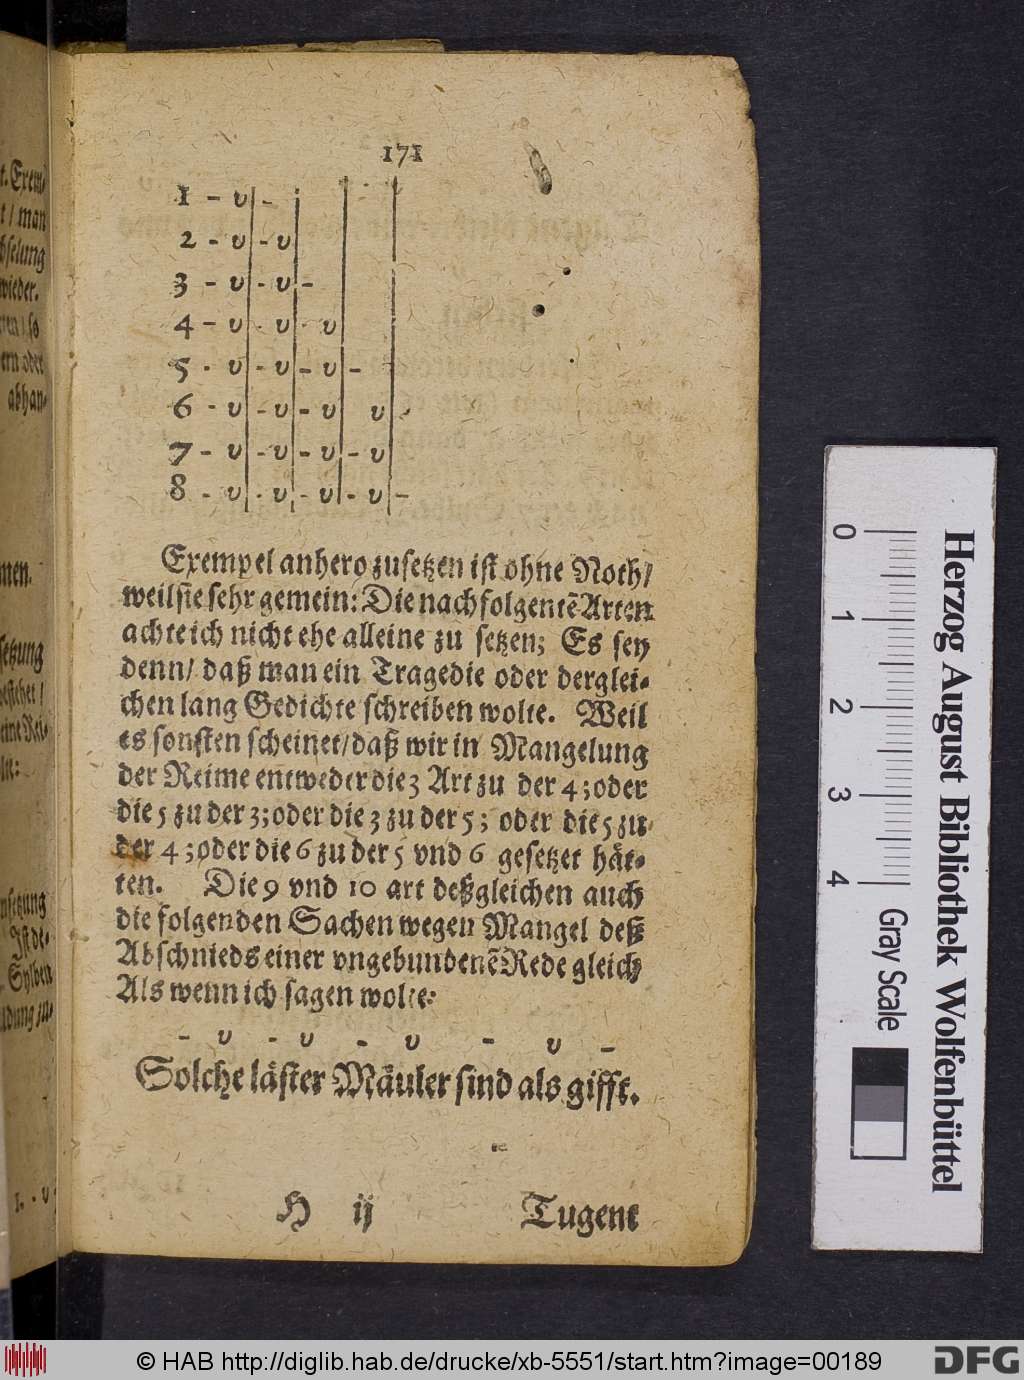 171
1 - υ | -
2 - υ | - υ
3 - υ | - υ | -
4 - υ | - υ | - υ
5 - υ | - υ | - υ | -
6 - υ | - υ | - υ | υ
7 - υ | - υ | - υ | - υ
8 - υ | - υ | - υ | - υ | -
Exempel anhero zusetzen ist ohne Noth/
weil sie sehr gemein: Die nachfolgentẽ Arten
achte ich nicht ehe alleine zu setzen; Es sey
denn/ daß man ein Tragedie oder derglei-
chen lang Gedichte schreiben wolte. Weil
es sonsten scheinet/ daß wir in Mangelung
der Reime entweder die 3 Art zu der 4; oder
die 5 zu der 3; oder die 3 zu der 5; oder die 5 zu
der 4; oder die 6 zu der 5 vnd 6 gesetzet hät-
ten. Die 9 vnd 10 art deßgleichen auch
die folgenden Sachen wegen Mangel deß
Abschnieds einer vngebundenẽ Rede gleich
Als wenn ich sagen wolte:
- υ - υ - υ - υ -
Solche läster Mäuler sind als gifft.
H ij Tugent
t. Exem-
t / man
wieder.
ern oder
abhan-
men.
setzung
Sylben
1. - υ
0 1 2 3 4 Gray Scale
Herzog August Bibliothek Wolfenbüttel
© HAB http://diglib.hab.de/drucke/xb-5551/start.htm?image=00189
DFG